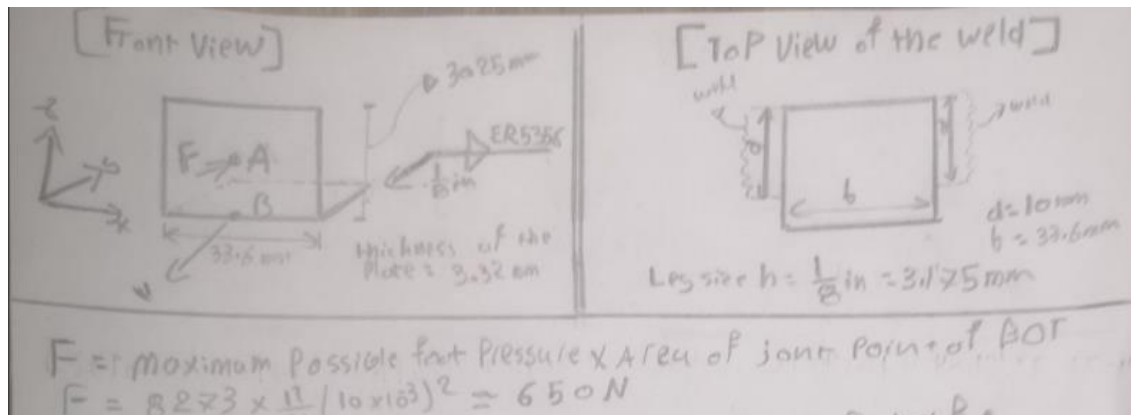 [Front View]
30.25 mm
z
y
x
F
A
ER5356
1/8 in
B
33.6 mm
thickness of the
Plate = 3.32 mm
[ToP View of the weld]
weld
weld
d
d
b
d = 10 mm
b = 33.6 mm
Leg size h = 1/8 in = 3.175 mm
F = maximum Possible foot Pressure x Area of joint Point of BOT
F = 8273 x π/ (10 x 10³)² = 650 N